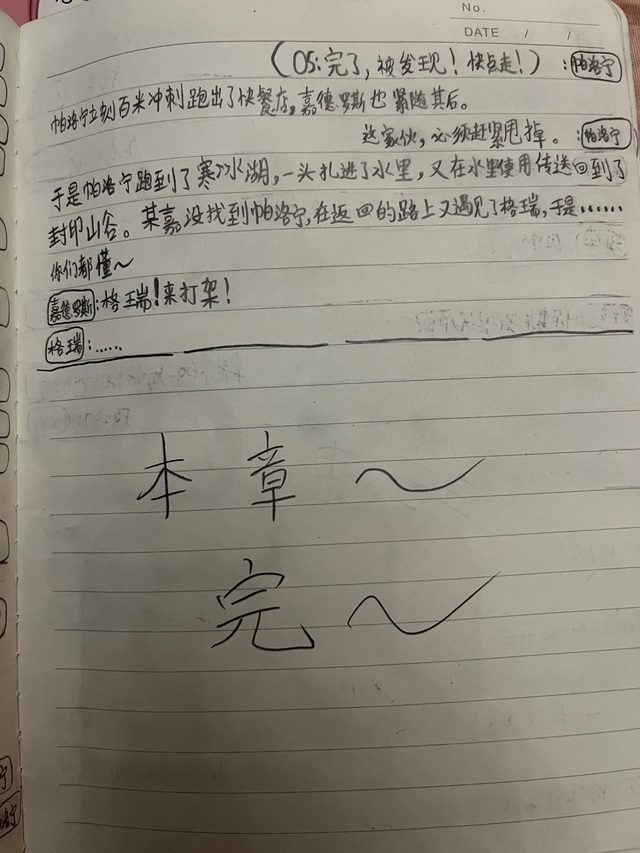 No.
DATE / /
(OS:完了,被发现!快点走!):帕洛宁
帕洛宁立刻百米冲刺跑出了快餐店,嘉德罗斯也紧随其后。
这家伙,必须赶紧甩掉。:帕洛宁
于是帕洛宁跑到了寒冰湖,一头扎进了水里,又在水里使用传送回到了
封印山谷。某嘉没找到帕洛宁,在返回的路上又遇见了格瑞,于是……
你们都懂~
嘉德罗斯:格瑞!来打架!
格瑞:……
本章~
完~
宁
洛宁